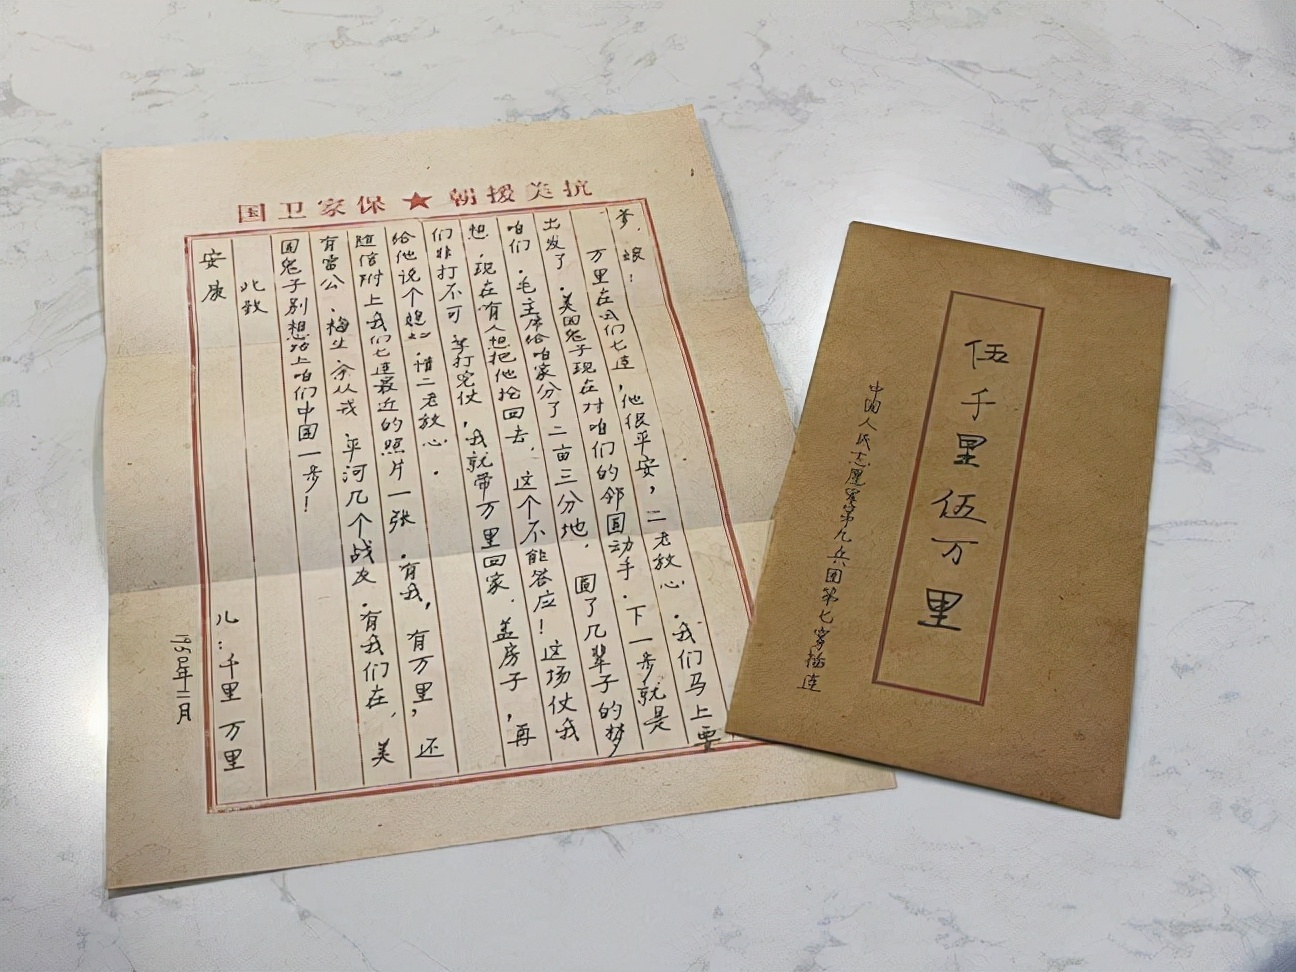 抗美援朝★保家卫国
爹,娘:
万里在我们七连,他很平安,二老放心.我们马上要
出发了.美国鬼子现在对咱们的邻国动手.下一步就是
咱们.毛主席给咱家分了二亩三分地.圆了几辈子的梦
想.现在有人想把他抢回去.这个不能答应!这场仗我
们非打不可.等打完仗,我就带万里回家.盖房子,再
给他说个媳妇.请二老放心.
随信附上我们七连最近的照片一张.有我,有万里,还
有雷公.梅生.余从戎.平河几个战友.有我们在.美
国鬼子别想踏上咱们中国一步!
此致
安康
儿:千里 万里
1950年11月
伍千里伍万里
中国人民志愿军第九兵团第七穿插连